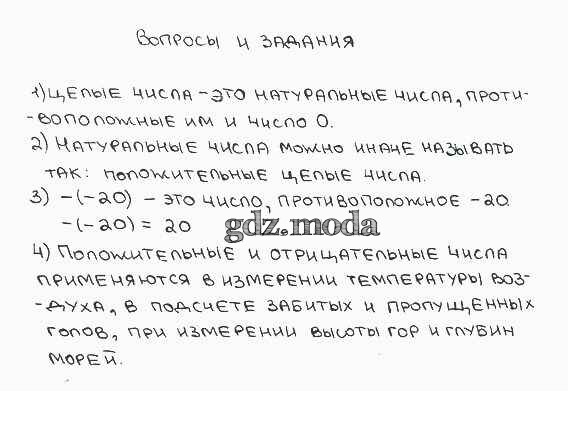 Вопросы и задания
1) Целые числа – это натуральные числа, проти-
-воположные им и число 0.
2) Натуральные числа можно иначе называть
так: положительные целые числа.
3) –(–20) – это число, противоположное –20.
–(–20) = 20 gdz.moda
4) Положительные и отрицательные числа
применяются в измерении температуры воз-
-духа, в подсчете забитых и пропущенных
голов, при измерении высоты гор и глубин
морей.